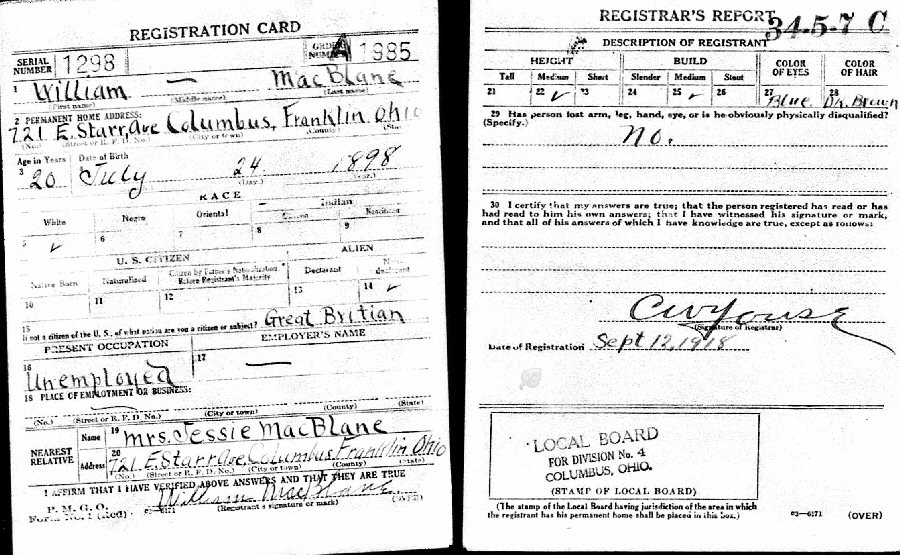 REGISTRATION CARD
SERIAL NUMBER 1298 ORDER NUMBER A 1985
1 William — MacBlane
(First name) (Middle name) (Last name)
2 PERMANENT HOME ADDRESS:
721 E. Starr Ave Columbus, Franklin Ohio
(No.) (Street or R. F. D. No.) (City or town) (County) (State)
Age in Years Date of Birth
3 20 July 24 1898
(Day.)
RACE
White Negro Oriental Indian
Citizen Noncitizen
5 ✓ 6 7 8 9
U. S. CITIZEN ALIEN
Native Born Naturalized Citizen by Father's Naturalization Before Registrant's Majority Declarant Non-declarant
10 11 12 13 14 ✓
15 If not a citizen of the U. S. of what nation are you a citizen or subject? Great Britian
PRESENT OCCUPATION EMPLOYER'S NAME
16 Unemployed 17 —
18 PLACE OF EMPLOYMENT OR BUSINESS:
(No.) (Street or R. F. D. No.) (City or town) (County) (State)
NEAREST RELATIVE
Name 19 Mrs. Jessie MacBlane
Address 20 721 E. Starr Ave, Columbus, Franklin, Ohio
(No.) (Street or R. F. D. No.) (City or town) (County) (State)
I AFFIRM THAT I HAVE VERIFIED ABOVE ANSWERS AND THAT THEY ARE TRUE
P. M. G. O.
Form No. 1 (Red) 03—6171 William MacBlane
(Registrant's signature or mark) (OVER)
REGISTRAR'S REPORT
34-5-7 C
DESCRIPTION OF REGISTRANT
HEIGHT BUILD COLOR OF EYES COLOR OF HAIR
Tall Medium Short Slender Medium Stout
21 22 ✓ 23 24 25 ✓ 26 27 Blue 28 Dk. Brown
29 Has person lost arm, leg, hand, eye, or is he obviously physically disqualified?
(Specify.)
No.
30 I certify that my answers are true; that the person registered has read or has
had read to him his own answers; that I have witnessed his signature or mark,
and that all of his answers of which I have knowledge are true, except as follows:
(Signature of Registrar)
Date of Registration Sept 12, 1918
LOCAL BOARD
FOR DIVISION No. 4
COLUMBUS, OHIO.
(STAMP OF LOCAL BOARD)
(The stamp of the Local Board having jurisdiction of the area in which
the registrant has his permanent home shall be placed in this box.) 03—6171 (OVER)